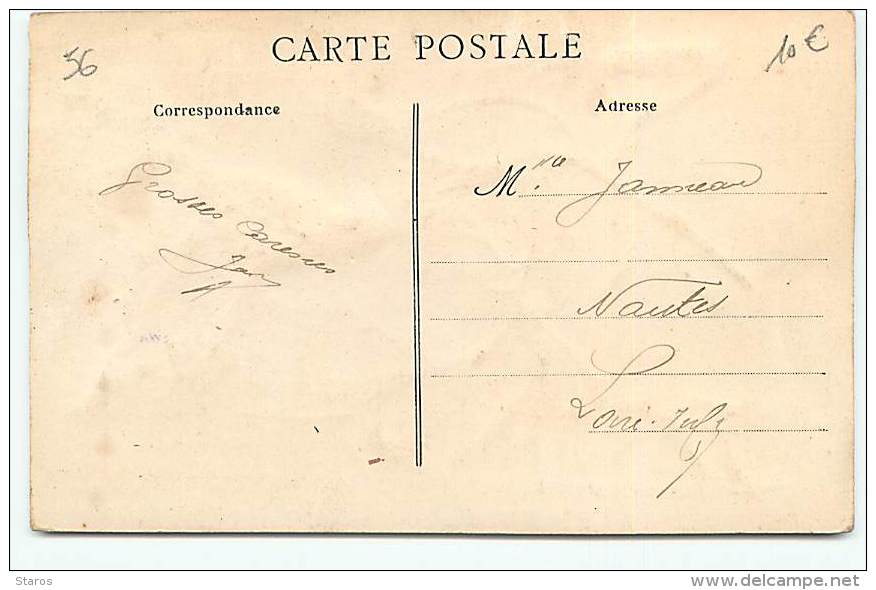 56
CARTE POSTALE
10 €
Correspondance
Adresse
Grosses Caresses
Mlle Janneau
Nantes
Loire-Infre
Staros
www.delcampe.net